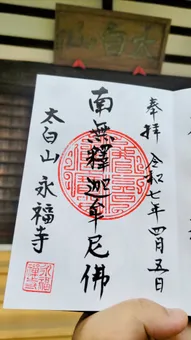 太白山
奉拝 令和七年四月五日
南無釋迦牟尼佛
太白山 永福寺